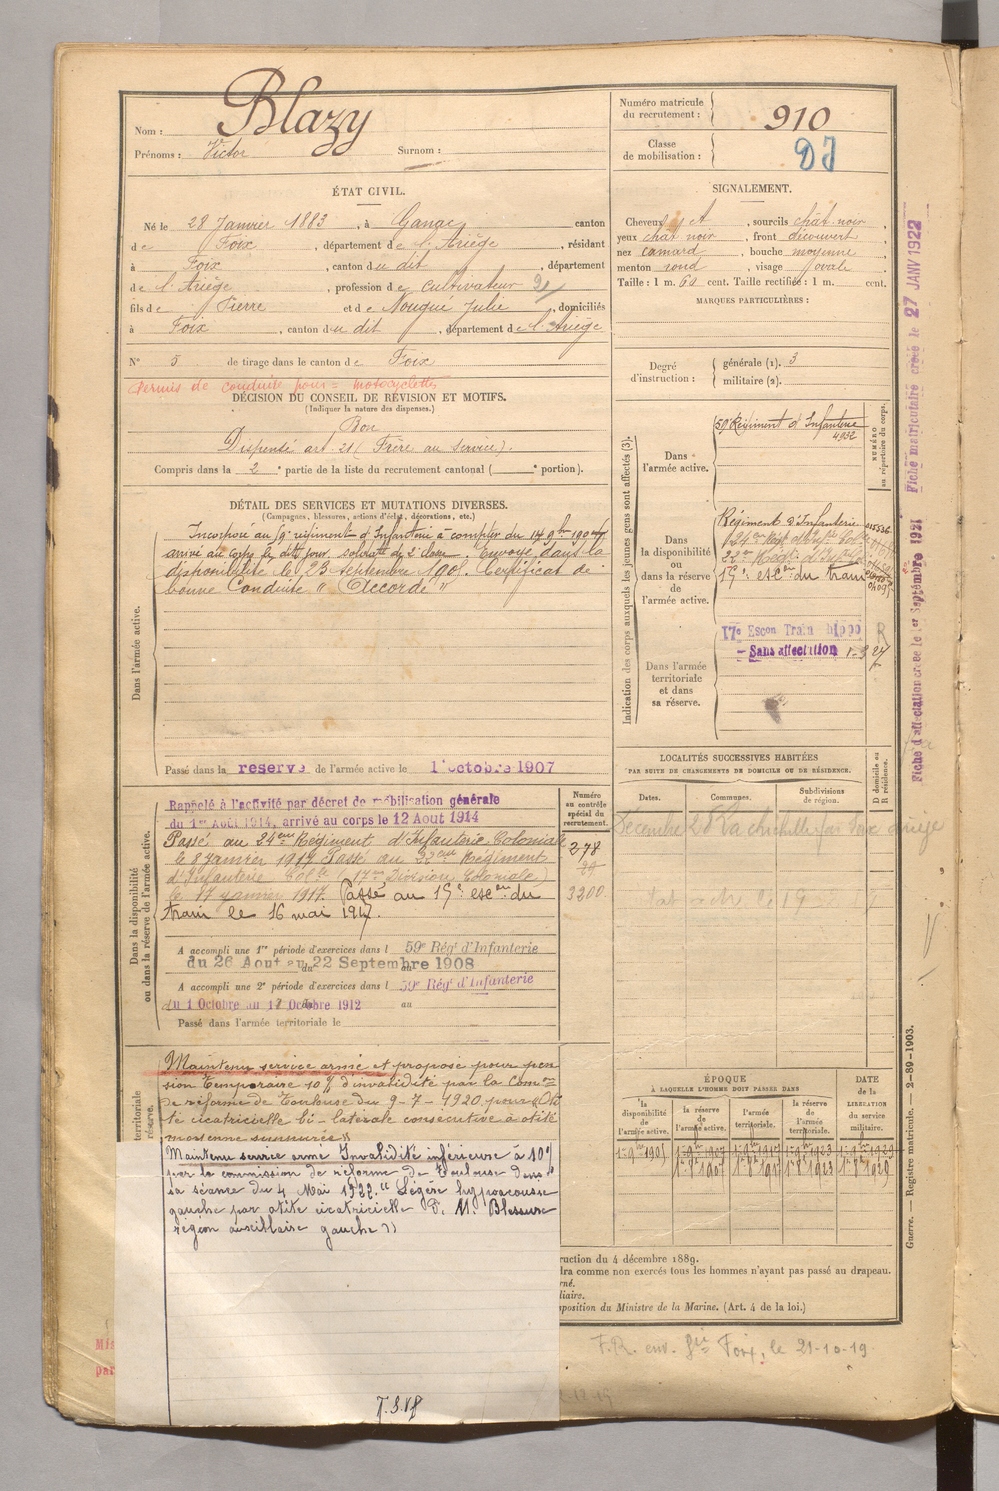 Nom : Blazy
Prénoms : Victor Surnom :
Numéro matricule du recrutement : 910
Classe de mobilisation :
ÉTAT CIVIL.
Né le 28 Janvier 1883, à Ganac, canton
de Foix, département de l'Ariège, résidant
à Foix, canton du dit, département
de l'Ariège, profession de Cultivateur
fils de Pierre et de Nougué Julie, domiciliés
à Foix, canton du dit, département de l'Ariège
N° 5 de tirage dans le canton de Foix
Permis de conduire pour = motocyclettes
DÉCISION DU CONSEIL DE RÉVISION ET MOTIFS.
(Indiquer la nature des dispenses.)
Bon
Dispensé art. 21 (Frère au service).
Compris dans la 2e partie de la liste du recrutement cantonal ( e portion).
SIGNALEMENT.
Cheveux , sourcils chat. noir,
yeux chat noir, front découvert,
nez camard, bouche moyenne,
menton rond, visage ovale.
Taille : 1 m. 60 cent. Taille rectifiée : 1 m. cent.
MARQUES PARTICULIÈRES :
Degré d'instruction :
générale (1). 3
militaire (2).
DÉTAIL DES SERVICES ET MUTATIONS DIVERSES.
(Campagnes, blessures, actions d'éclat, décorations, etc.)
Dans l'armée active.
Incorporé au 59e régiment d'Infanterie à compter du 14 9bre
arrivé au corps le dit jour, soldat de 2e classe. Envoyé dans la
disponibilité le 23 septembre Certificat de
bonne Conduite "Accordé"
Passé dans la réserve de l'armée active le 1 octobre 1907
Indication des corps auxquels les jeunes gens sont affectés (3).
NUMÉRO au répertoire du corps.
Dans l'armée active.
59e Régiment d'Infanterie
4932
Dans la disponibilité ou dans la réserve de l'armée active.
Régiment d'Infanterie
24me Régt d'Inf Col
22me Régt d'Inf Cole
esc du train
Dans l'armée territoriale et dans sa réserve.
17e Escon Train hippo R
Sans affectation
Dans la disponibilité ou dans la réserve de l'armée active.
Rappelé à l'activité par décret de mobilisation générale
du 1er Août 1914, arrivé au corps le 12 Aout 1914
Passé au 24eme Régiment d'Infanterie Coloniale
le 8 janvier 1917. Passé au 22eme Régiment
d'Infanterie Colle (17me Division Coloniale)
le 17 janvier 1917. Passé au esc on du
train le 16 mai 1917.
Numéro au contrôle spécial du recrutement.
3200
A accompli une 1re période d'exercices dans l 59e Régt d'Infanterie
du 26 Aout au 22 Septembre 1908
A accompli une 2e période d'exercices dans l 59e Régt d'Infanterie
du 1 Octobre au 17 Octobre 1912 au
Passé dans l'armée territoriale le
LOCALITÉS SUCCESSIVES HABITÉES
PAR SUITE DE CHANGEMENTS DE DOMICILE OU DE RÉSIDENCE.
Dates. Communes. Subdivisions de région. D domicile ou R résidence.
territoriale
réserve.
Maintenu service armé et proposé pour pen
sion temporaire 10% d'invalidité par la Comon
de réforme de Toulouse du 9-7-1920 pour "Oti
te cicatricielle bi-latérale consécutive à otite
moyenne suppurée"
Maintenu service armé Invalidité inférieure à 10%
par la commission de réforme de Toulouse dans
sa séance du 4 Mai 1922. "Légère hypoacousie
gauche par otite cicatricielle D. M. Blessure
région auxilliaire gauche"
ÉPOQUE
À LAQUELLE L'HOMME DOIT PASSER DANS
la disponibilité de l'armée active. la réserve de l'armée active. l'armée territoriale. la réserve de l'armée territoriale. DATE de la LIBÉRATION du service militaire.
ruction du 4 décembre 1889.
dra comme non exercés tous les hommes n'ayant pas passé au drapeau.
rné.
liaire.
sposition du Ministre de la Marine. (Art. 4 de la loi.)
F.R. env. Foix, le 21-10-19
Guerre. — Registre matricule. — 2-89-1903.
Fiche d'affectation créée le 1er Septembre 1921 Fiche matriculaire créée le 27 JANV 1922